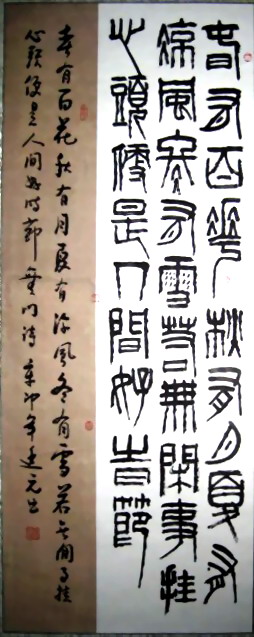 春有百花秋有月夏有
涼風冬有雪若無閑事挂
心頭便是人間好時節
春有百花秋有月夏有涼風冬有雪若无閒事挂
心頭便是人間好時節 無門詩 辛卯年